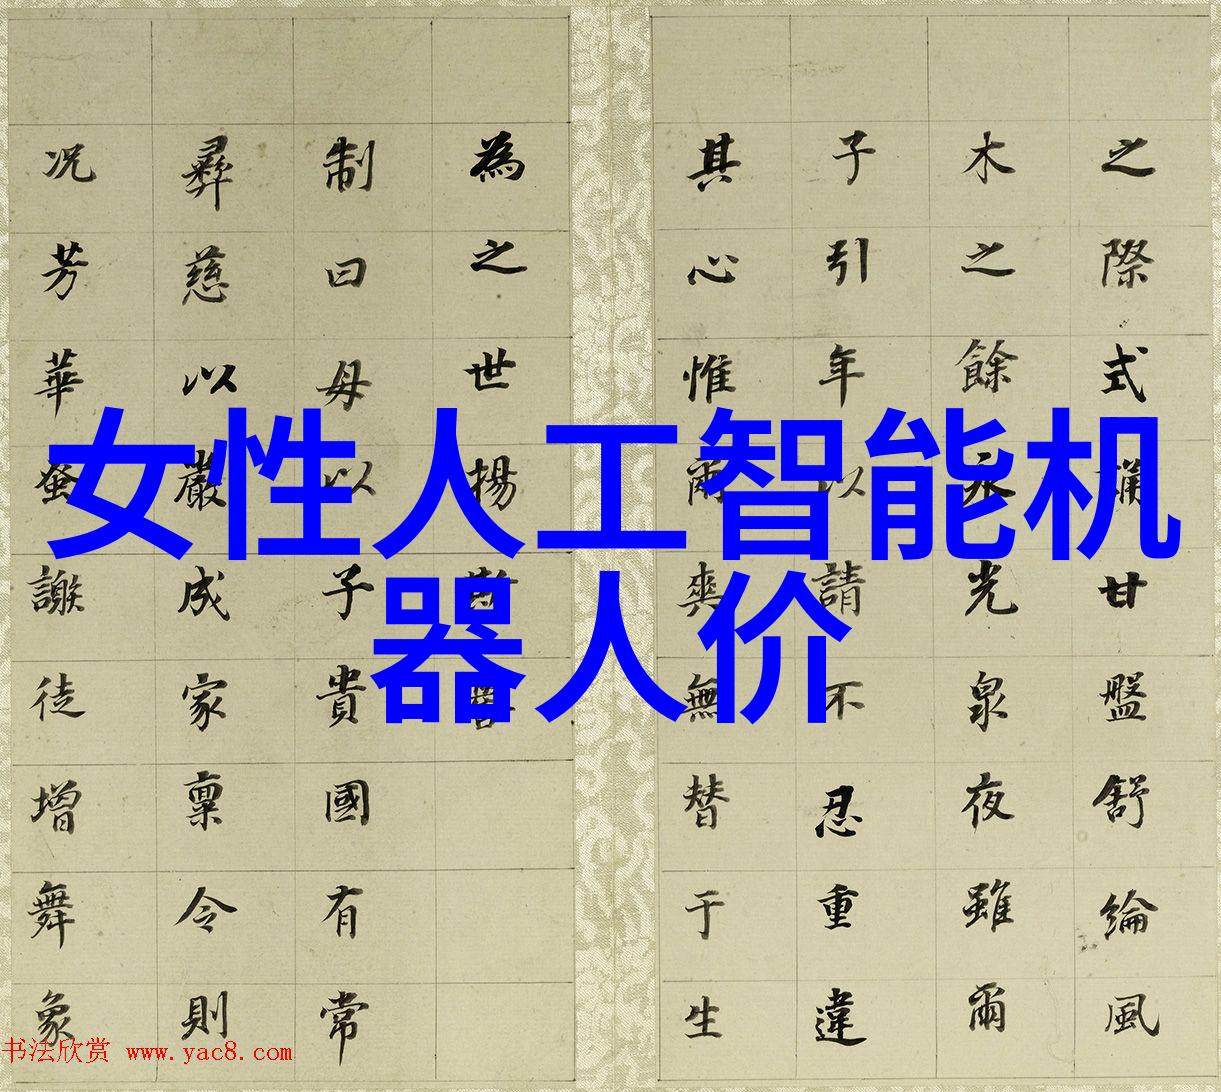 女性人工智能机
器人价
之際式甘盤舒綸風
木之餘永光泉夜雖爾
子引年以請不忍重違
其心惟爾爽無替于生
為之世揚
制曰母以子貴國有常
彝慈以嚴成家稟令則
况芳華蚤謝徒增舞象
书法欣赏 www.yac8.com